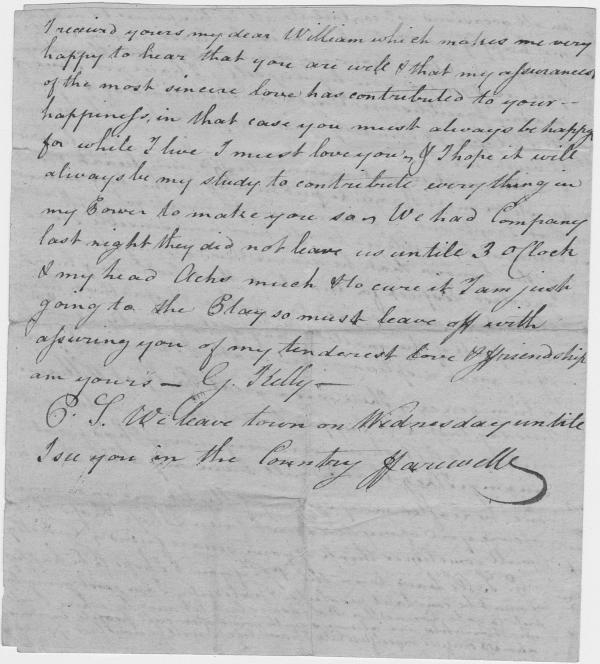 I receivd yours my dear William which makes me very
happy to hear that you are well & that my assurances
of the most sincere love has contributed to your --
happiness, in that case you must always be happy
for while I live I must love you, & I hope it will
always be my study to contribute everything in
my Power to make you so, We had Company
last night they did not leave us untile 3 oClock
& my head Achs much & to cure it I am just
going to the Play so must leave off with
assuring you of my tenderest love & ffriendship
am yours — G. Kelly —
P. S. We leave town on Wednesday untile
I see you in the Country ffarewell